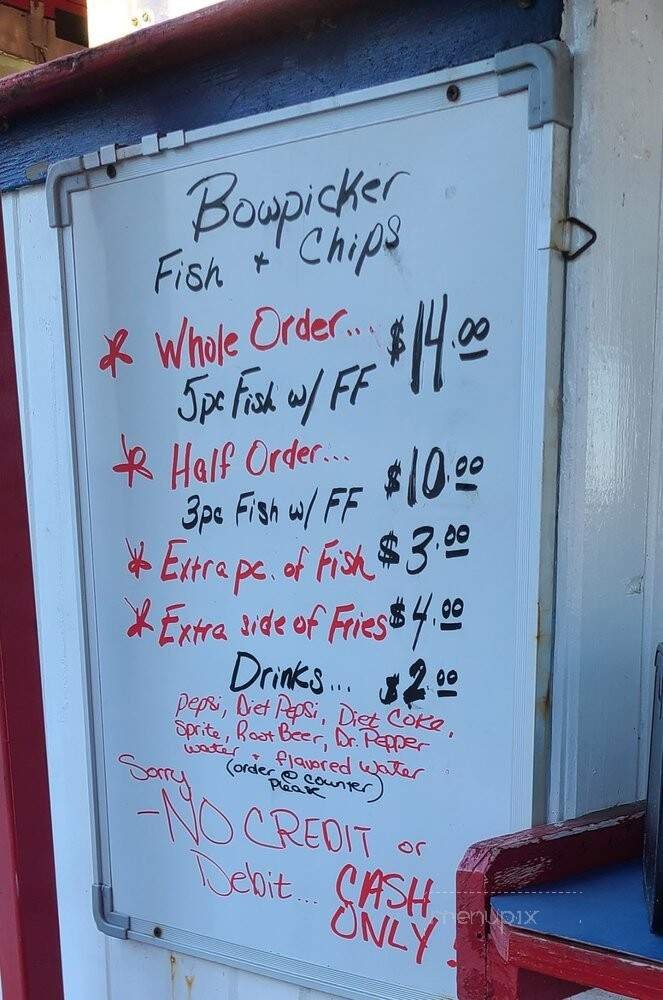 Bowpicker
Fish + Chips
* Whole Order... $14.00
5pc Fish w/ FF
* Half Order... $10.00
3pc Fish w/ FF
* Extra pc. of Fish $3.00
* Extra side of Fries $4.00
Drinks... $2.00
Pepsi, Diet Pepsi, Diet Coke,
Sprite, Root Beer, Dr. Pepper
water + flavored water
(order @ counter)
Please
Sorry
-NO CREDIT or
Debit... CASH
ONLY!
menupix